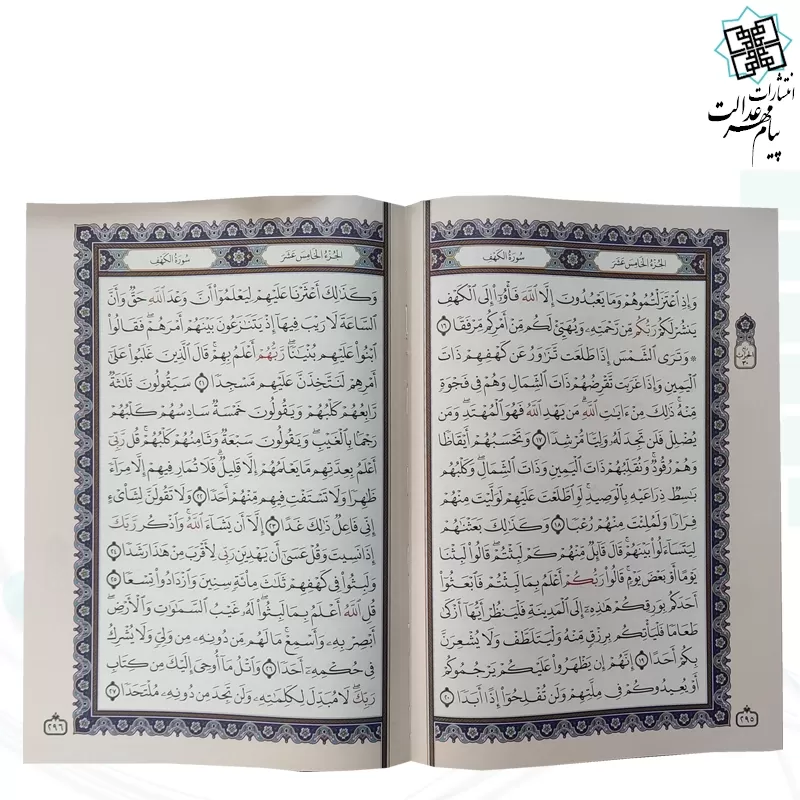 انتشارات
پیام مهر عدالت
سُورَةُ الكَهْفِ
الجُزْءُ الخَامِسَ عَشَرَ
وَإِذِ ٱعْتَزَلْتُمُوهُمْ وَمَا يَعْبُدُونَ إِلَّا ٱللَّهَ فَأْوُۥٓا۟ إِلَى ٱلْكَهْفِ
يَنشُرْ لَكُمْ رَبُّكُم مِّن رَّحْمَتِهِۦ وَيُهَيِّئْ لَكُم مِّنْ أَمْرِكُم مِّرْفَقًا ١٦
۞ وَتَرَى ٱلشَّمْسَ إِذَا طَلَعَت تَّزَٰوَرُ عَن كَهْفِهِمْ ذَاتَ
ٱلْيَمِينِ وَإِذَا غَرَبَت تَّقْرِضُهُمْ ذَاتَ ٱلشِّمَالِ وَهُمْ فِى فَجْوَةٍ
مِّنْهُ ۚ ذَٰلِكَ مِنْ ءَايَٰتِ ٱللَّهِ ۗ مَن يَهْدِ ٱللَّهُ فَهُوَ ٱلْمُهْتَدِ ۖ وَمَن
يُضْلِلْ فَلَن تَجِدَ لَهُۥ وَلِيًّا مُّرْشِدًا ١٧ وَتَحْسَبُهُمْ أَيْقَاظًا
وَهُمْ رُقُودٌ ۚ وَنُقَلِّبُهُمْ ذَاتَ ٱلْيَمِينِ وَذَاتَ ٱلشِّمَالِ ۖ وَكَلْبُهُم
بَٰسِطٌ ذِرَاعَيْهِ بِٱلْوَصِيدِ ۚ لَوِ ٱطَّلَعْتَ عَلَيْهِمْ لَوَلَّيْتَ مِنْهُمْ
فِرَارًا وَلَمُلِئْتَ مِنْهُمْ رُعْبًا ١٨ وَكَذَٰلِكَ بَعَثْنَٰهُمْ
لِيَتَسَآءَلُوا۟ بَيْنَهُمْ ۚ قَالَ قَآئِلٌ مِّنْهُمْ كَمْ لَبِثْتُمْ ۖ قَالُوا۟ لَبِثْنَا
يَوْمًا أَوْ بَعْضَ يَوْمٍ ۚ قَالُوا۟ رَبُّكُمْ أَعْلَمُ بِمَا لَبِثْتُمْ فَٱبْعَثُوٓا۟
أَحَدَكُم بِوَرِقِكُمْ هَٰذِهِۦٓ إِلَى ٱلْمَدِينَةِ فَلْيَنظُرْ أَيُّهَآ أَزْكَىٰ
طَعَامًا فَلْيَأْتِكُم بِرِزْقٍ مِّنْهُ وَلْيَتَلَطَّفْ وَلَا يُشْعِرَنَّ
بِكُمْ أَحَدًا ١٩ إِنَّهُمْ إِن يَظْهَرُوا۟ عَلَيْكُمْ يَرْجُمُوكُمْ
أَوْ يُعِيدُوكُمْ فِى مِلَّتِهِمْ وَلَن تُفْلِحُوٓا۟ إِذًا أَبَدًا ٢٠
٢٩٥
الجُزْءُ الخَامِسَ عَشَرَ
سُورَةُ الكَهْفِ
وَكَذَٰلِكَ أَعْثَرْنَا عَلَيْهِمْ لِيَعْلَمُوٓا۟ أَنَّ وَعْدَ ٱللَّهِ حَقٌّ وَأَنَّ
ٱلسَّاعَةَ لَا رَيْبَ فِيهَآ إِذْ يَتَنَٰزَعُونَ بَيْنَهُمْ أَمْرَهُمْ ۖ فَقَالُوا۟
ٱبْنُوا۟ عَلَيْهِم بُنْيَٰنًا ۖ رَّبُّهُمْ أَعْلَمُ بِهِمْ ۚ قَالَ ٱلَّذِينَ غَلَبُوا۟ عَلَىٰٓ
أَمْرِهِمْ لَنَتَّخِذَنَّ عَلَيْهِم مَّسْجِدًا ٢١ سَيَقُولُونَ ثَلَٰثَةٌ
رَّابِعُهُمْ كَلْبُهُمْ وَيَقُولُونَ خَمْسَةٌ سَادِسُهُمْ كَلْبُهُمْ
رَجْمًۢا بِٱلْغَيْبِ ۖ وَيَقُولُونَ سَبْعَةٌ وَثَامِنُهُمْ كَلْبُهُمْ ۚ قُل رَّبِّىٓ
أَعْلَمُ بِعِدَّتِهِم مَّا يَعْلَمُهُمْ إِلَّا قَلِيلٌ ۗ فَلَا تُمَارِ فِيهِمْ إِلَّا مِرَآءً
ظَٰهِرًا وَلَا تَسْتَفْتِ فِيهِم مِّنْهُمْ أَحَدًا ٢٢ وَلَا تَقُولَنَّ لِشَا۟ىْءٍ
إِنِّى فَاعِلٌ ذَٰلِكَ غَدًا ٢٣ إِلَّآ أَن يَشَآءَ ٱللَّهُ ۚ وَٱذْكُر رَّبَّكَ
إِذَا نَسِيتَ وَقُلْ عَسَىٰٓ أَن يَهْدِيَنِ رَبِّى لِأَقْرَبَ مِنْ هَٰذَا رَشَدًا ٢٤
وَلَبِثُوا۟ فِى كَهْفِهِمْ ثَلَٰثَ مِا۟ئَةٍ سِنِينَ وَٱزْدَادُوا۟ تِسْعًا ٢٥
قُلِ ٱللَّهُ أَعْلَمُ بِمَا لَبِثُوا۟ ۖ لَهُۥ غَيْبُ ٱلسَّمَٰوَٰتِ وَٱلْأَرْضِ ۖ
أَبْصِرْ بِهِۦ وَأَسْمِعْ ۚ مَا لَهُم مِّن دُونِهِۦ مِن وَلِىٍّ وَلَا يُشْرِكُ
فِى حُكْمِهِۦٓ أَحَدًا ٢٦ وَٱتْلُ مَآ أُوحِىَ إِلَيْكَ مِن كِتَابِ
رَبِّكَ ۖ لَا مُبَدِّلَ لِكَلِمَٰتِهِۦ وَلَن تَجِدَ مِن دُونِهِۦ مُلْتَحَدًا ٢٧
٢٩٦